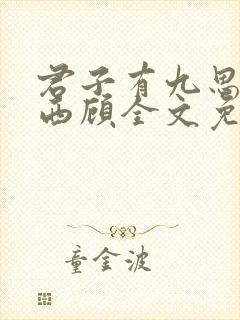 君子有九思
西顾全文免
童金波